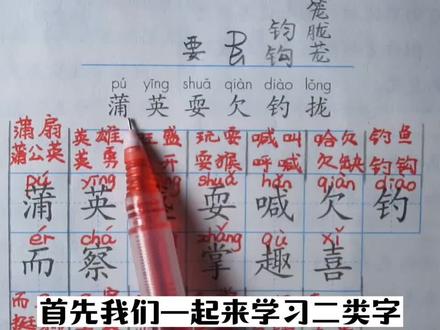 笼
钧 胧
要 钩 茏
pú yīng shuǎ qiàn diào lǒng
蒲 英 耍 欠 钓 拢
蒲扇 英雄 盛 玩耍 喊叫 哈欠 钓鱼
蒲公英 英勇 开 耍猴 呼喊 欠缺 钓钩
pú yīng shuǎ hǎn qiàn diào
蒲 英 耍 喊 欠 钓
ér chá zhǎng qù xǐ
而 察 掌 趣 喜
首先我们一起来学习二类字